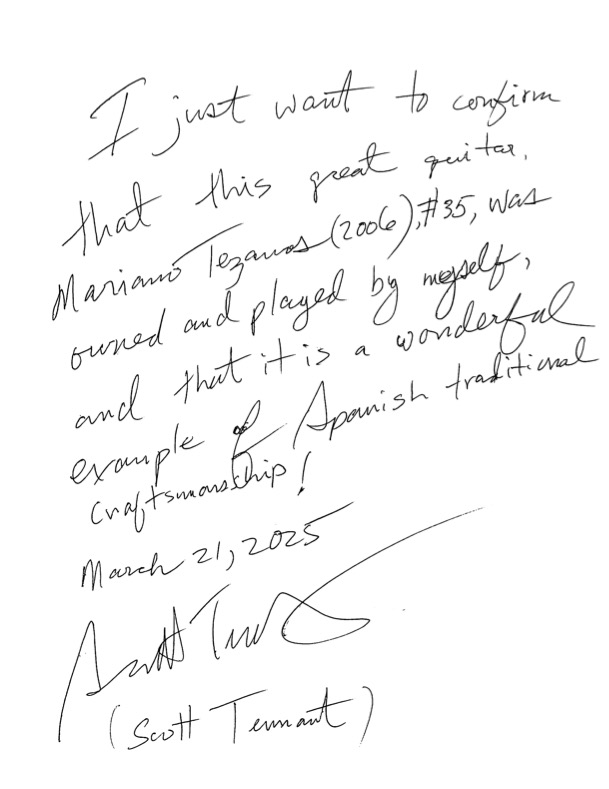 I just want to confirm
that this great guitar,
Mariano Tezanos (2006), #35, was
owned and played by myself,
and that it is a wonderful
example of Spanish traditional
craftsmanship!
March 21, 2025
Scott Tennant
(Scott Tennant)